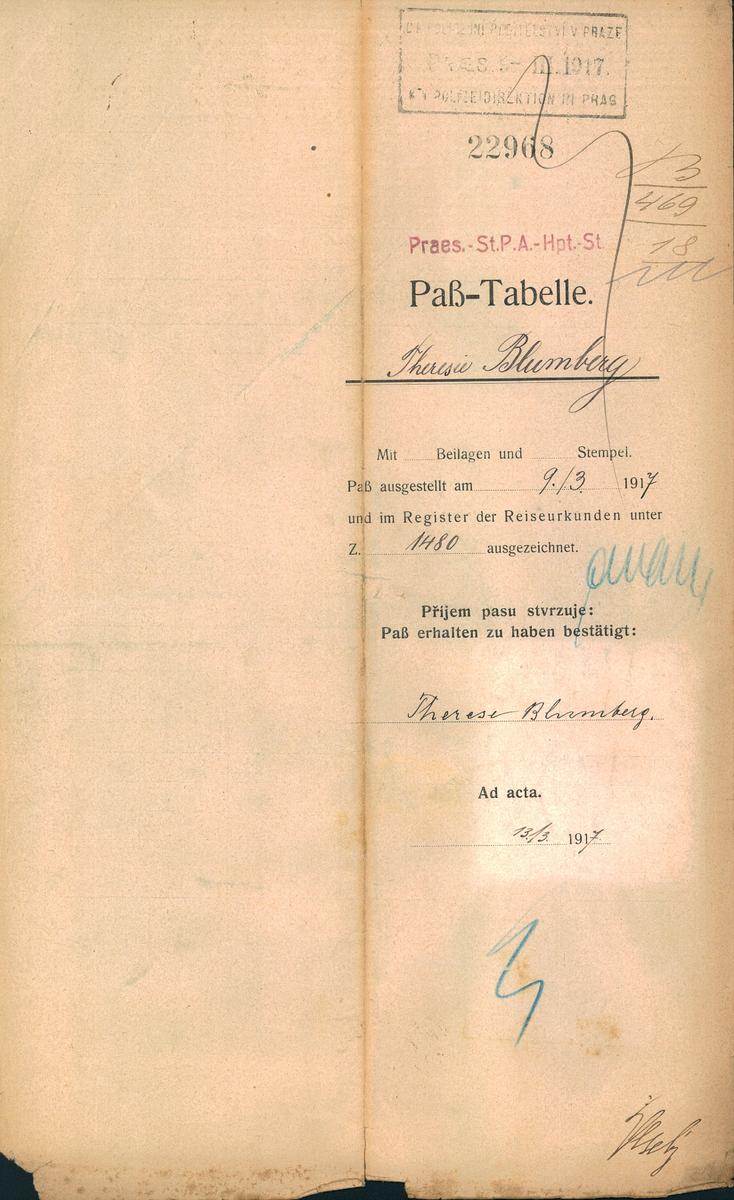 PRAES. 5- III. 1917.
K. K. POLIZEIDIREKTION IN PRAG
22968
B
469
18
Praes.-St.P.A.-Hpt.-St.
Paß-Tabelle.
Theresie Blumberg
Mit Beilagen und Stempel.
Paß ausgestellt am 9./3. 1917
und im Register der Reiseurkunden unter
Z. 1480 ausgezeichnet.
Příjem pasu stvrzuje:
Paß erhalten zu haben bestätigt:
Therese Blumberg.
Ad acta.
13./3. 1917